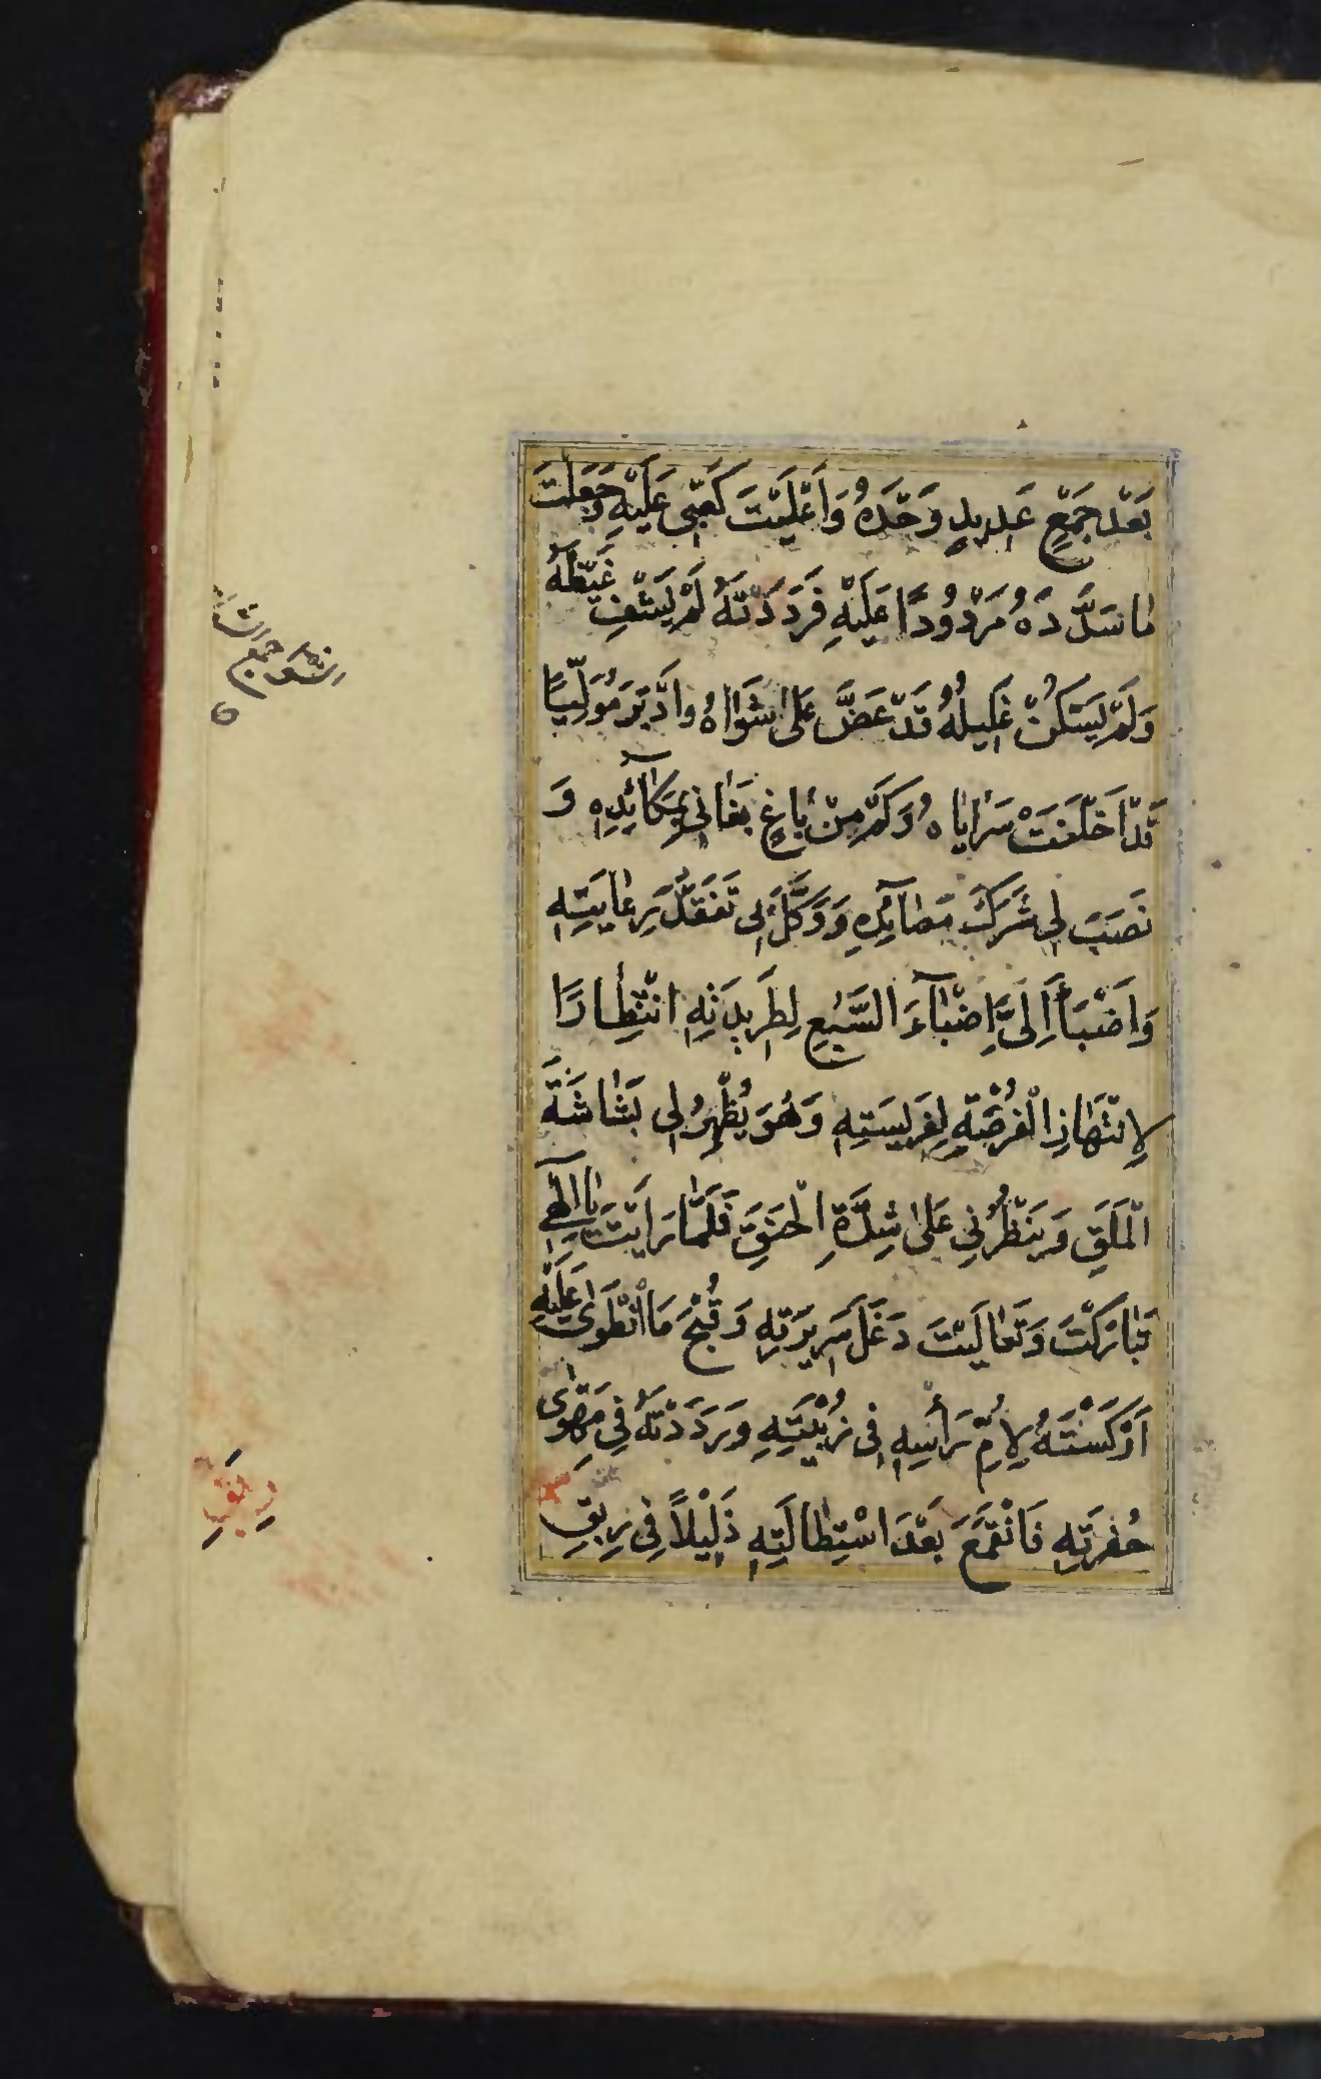 بَعْدَ جَمْعٍ عَدِيدٍ وَحْدَهُ وَاَعْلَيْتَ كَعْبِى عَلَيْهِ وَجَعَلْتَ
مَا سَدَّدَهُ مَرْدُودًا عَلَيْهِ فَرَدَدْتَهُ لَمْ يَشْفِ غَيْظَهُ
وَلَمْ يَسْكُنْ غَلِيلُهُ قَدْ عَضَّ عَلَى شَوَاهُ وَاَدْبَرَ مُوَلِّيًا
قَدْ اَخْلَفَتْ سَرَايَاهُ وَكَمْ مِنْ بَاغٍ بَغَانِى بِمَكَآئِدِهِ وَ
نَصَبَ لِى شَرَكَ مَصَآئِدِهِ وَوَكَّلَ بِى تَفَقُّدَ رِعَايَتِهِ
وَاَضْبَأَ اِلَىَّ اِضْبَآءَ السَّبُعِ لِطَرِيدَتِهِ انْتِظَارًا
لِانْتِهَازِ الْفُرْصَةِ لِفَرِيسَتِهِ وَهُوَ يُظْهِرُ لِى بَشَاشَةَ
الْمَلَقِ وَيَنْظُرُنِى عَلَى شِدَّةِ الْحَنَقِ فَلَمَّا رَاَيْتَ يَا اِلٰهِى
تَبَارَكْتَ وَتَعَالَيْتَ دَغَلَ سَرِيرَتِهِ وَقُبْحَ مَا انْطَوَى عَلَيْهِ
اَرْكَسْتَهُ لِاُمِّ رَأْسِهِ فِى زُبْيَتِهِ وَرَدَدْتَهُ فِى مَهْوَى
حُفْرَتِهِ فَانْقَمَعَ بَعْدَ اسْتِطَالَتِهِ ذَلِيْلًا فِى رِبَقِ